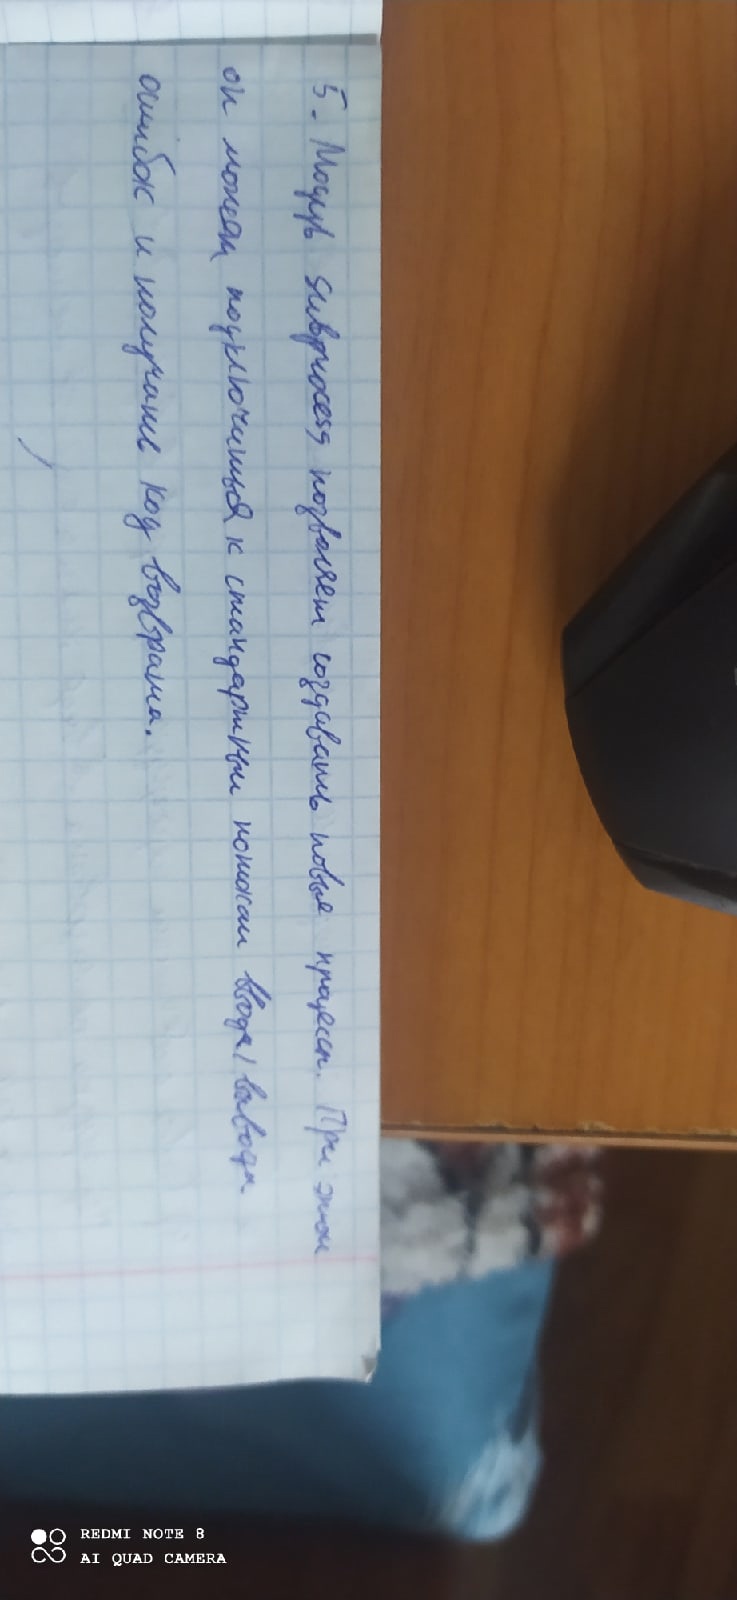 5. Модуль subprocess позволяет создавать новые процессы. При этом
он может подключиться к стандартным потокам ввода/вывода
ошибок и получать код возврата.
REDMI NOTE 8
AI QUAD CAMERA